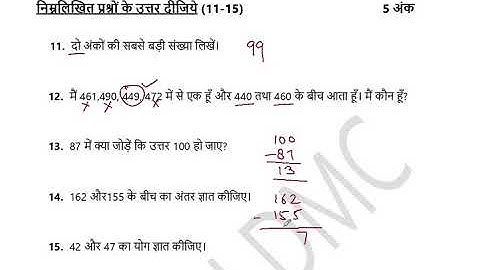 निम्नलिखित प्रश्नों के उत्तर दीजिये (11-15) 5 अंक
11. दो अंकों की सबसे बड़ी संख्या लिखें। 99
12. मैं 461,490, 449, 472 में से एक हूँ और 440 तथा 460 के बीच आता हूँ। मैं कौन हूँ?
13. 87 में क्या जोड़ें कि उत्तर 100 हो जाए?
100
-87
13
14. 162 और155 के बीच का अंतर ज्ञात कीजिए।
162
- 155
7
15. 42 और 47 का योग ज्ञात कीजिए।
DMC